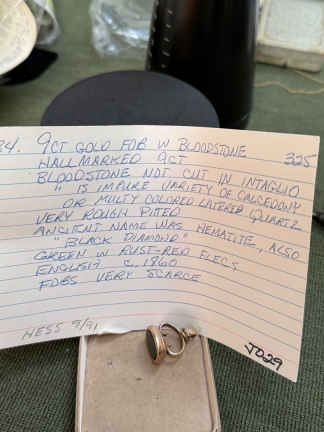 34. 9CT GOLD FOB W BLOODSTONE
HALLMARKED 9CT 325
BLOODSTONE NOT CUT IN INTAGLIO
" IS IMPURE VARIETY OF CALCEDONY
OR MULTY COLORED LAYERED QUARTZ
VERY ROUGH PITED
ANCIENT NAME WAS HEMATITE, ALSO
"BLACK DIAMOND"
GREEN W RUST-RED FLECS
ENGLISH C. 1860
FOBS VERY SCARCE
HESS 9/91
JO29